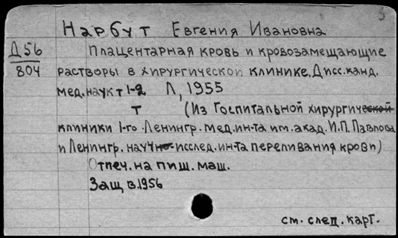 3
Нарбут Евгения Ивановна
Д56
804
Плацентарная кровь и кровозамещающие
растворы в хирургической клинике. Дисс. канд.
мед. наук т 1-2 Л, 1955
т (Из Госпитальной хирургической
клиники 1-го Ленингр. мед. ин-та им. акад. И.П. Павлова
и Ленингр. научно-исслед. ин-та переливания крови)
Отпеч. на пиш. маш.
Защ в 1956
см. след. карт.